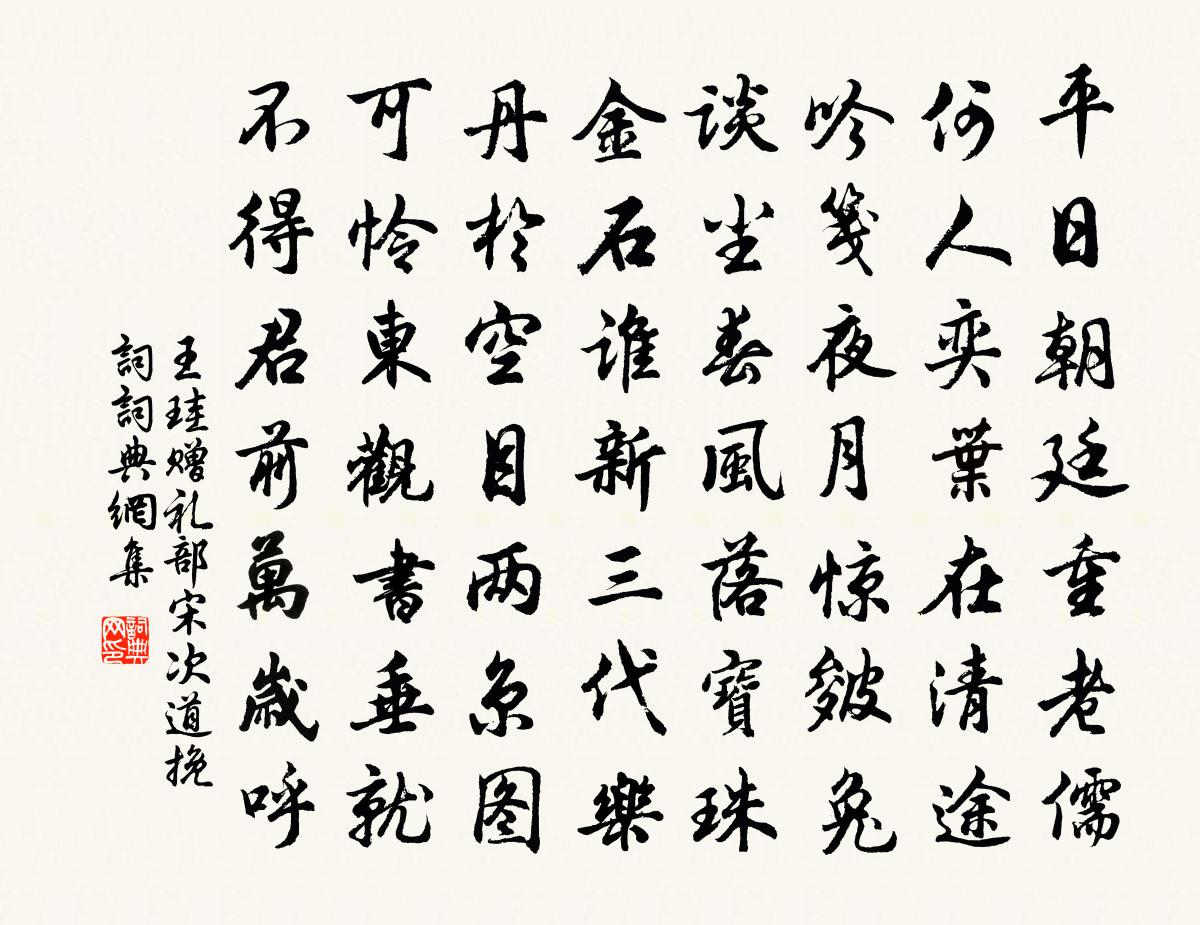 平日朝廷重老儒
何人奕葉在清途
吟箋夜月惊皺兔
谈尘春風落寶珠
金石谁新三代樂
丹於空目两京图
可怜東觀書垂就
不得君前萬歲呼
王珪赠礼部宋次道挽
詞詞典網集
詞典网印